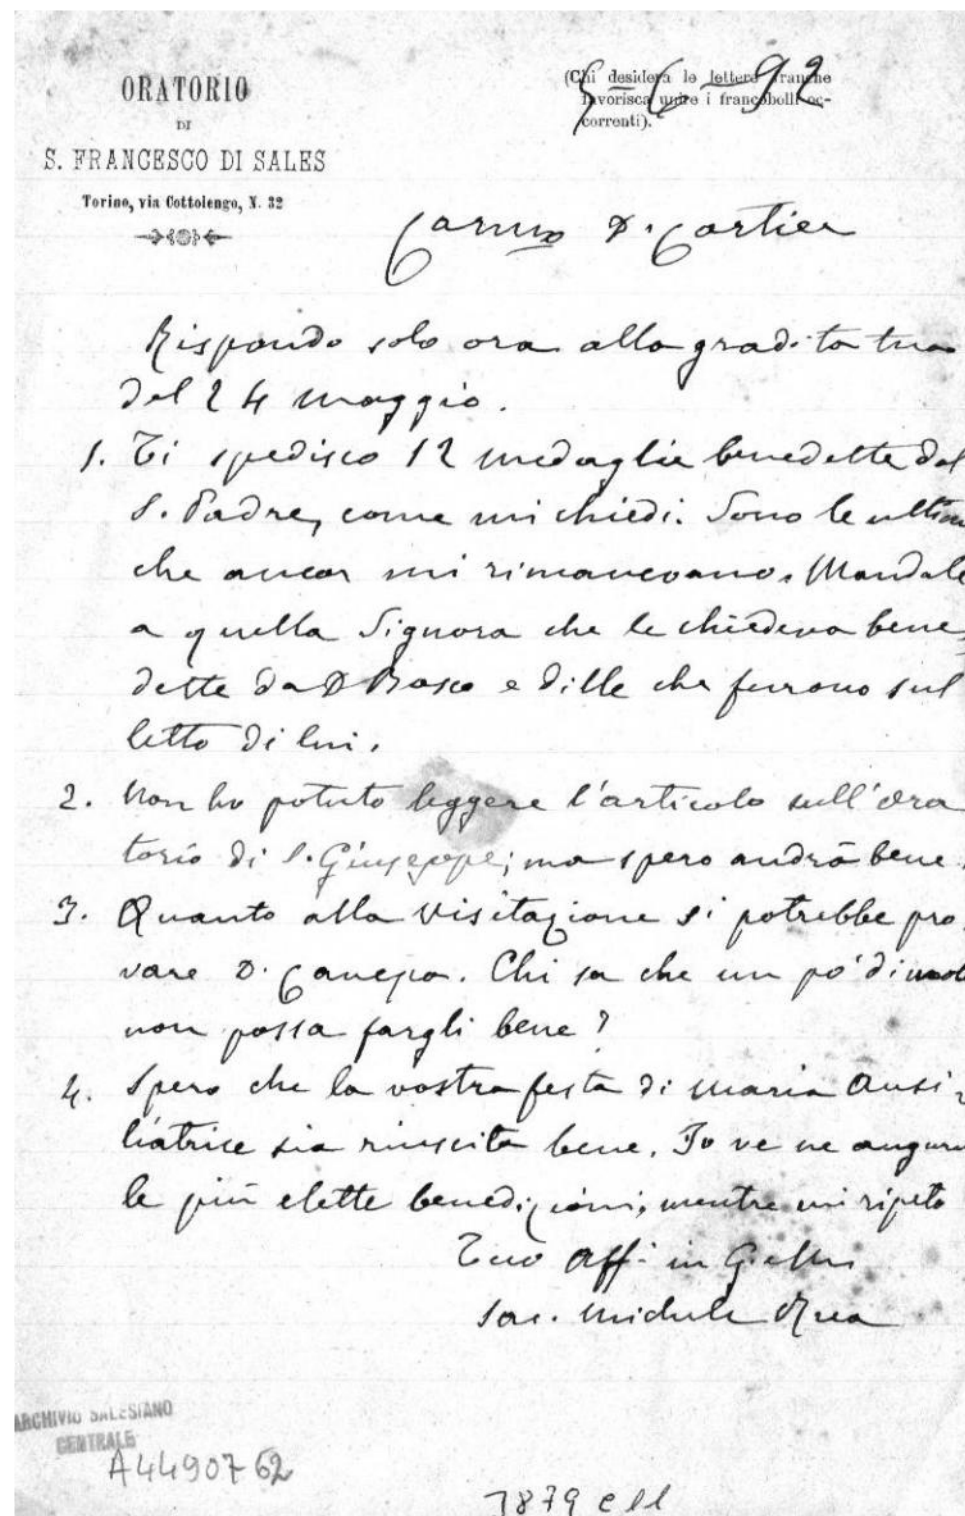 ORATORIO
DI
S. FRANCESCO DI SALES
Torino, via Cottolengo, N. 32
(Chi desidera le lettere franche
favorisca unire i francobolli oc-
correnti).
5-6-92
Carmo D. Cartier
Rispondo solo ora alla gradita tua
del 24 maggio.
1. Ti spedisco 12 medaglie benedette dal
S. Padre, come mi chiedi. Sono le ultime
che ancor mi rimanevano. Mandale
a quella Signora che le chiedeva bene-
dette da D Bosco e dille che furono sul
letto di lui.
2. Non ho potuto leggere l'articolo sull'Ora
torio di S. Giuseppe; ma spero andrà bene.
3. Quanto alla Visitazione si potrebbe pro-
vare D. Canepa. Chi sa che un pò di moto
non possa fargli bene?
4. Spero che la vostra festa di Maria Ausi-
liatrice sia riuscita bene. Io ve ne auguro
le più elette benedizioni, mentre mi ripeto
Tuo Aff. in G. e M.
Sac. Michele Rua
ARCHIVIO SALESIANO
CENTRALE
A4490762